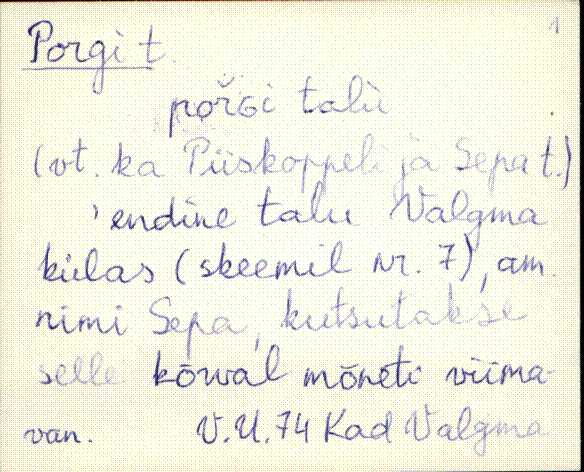 1
Porgi t.
pořGi talù
(vt. ka Piiskoppeli ja Sepa t.)
'endine talu Valgma
külas (skeemil nr. 7), am.
nimi Sepa, kutsutakse
selle kõrval mõneti viima-
van. V.U. 74 Kad Valgma